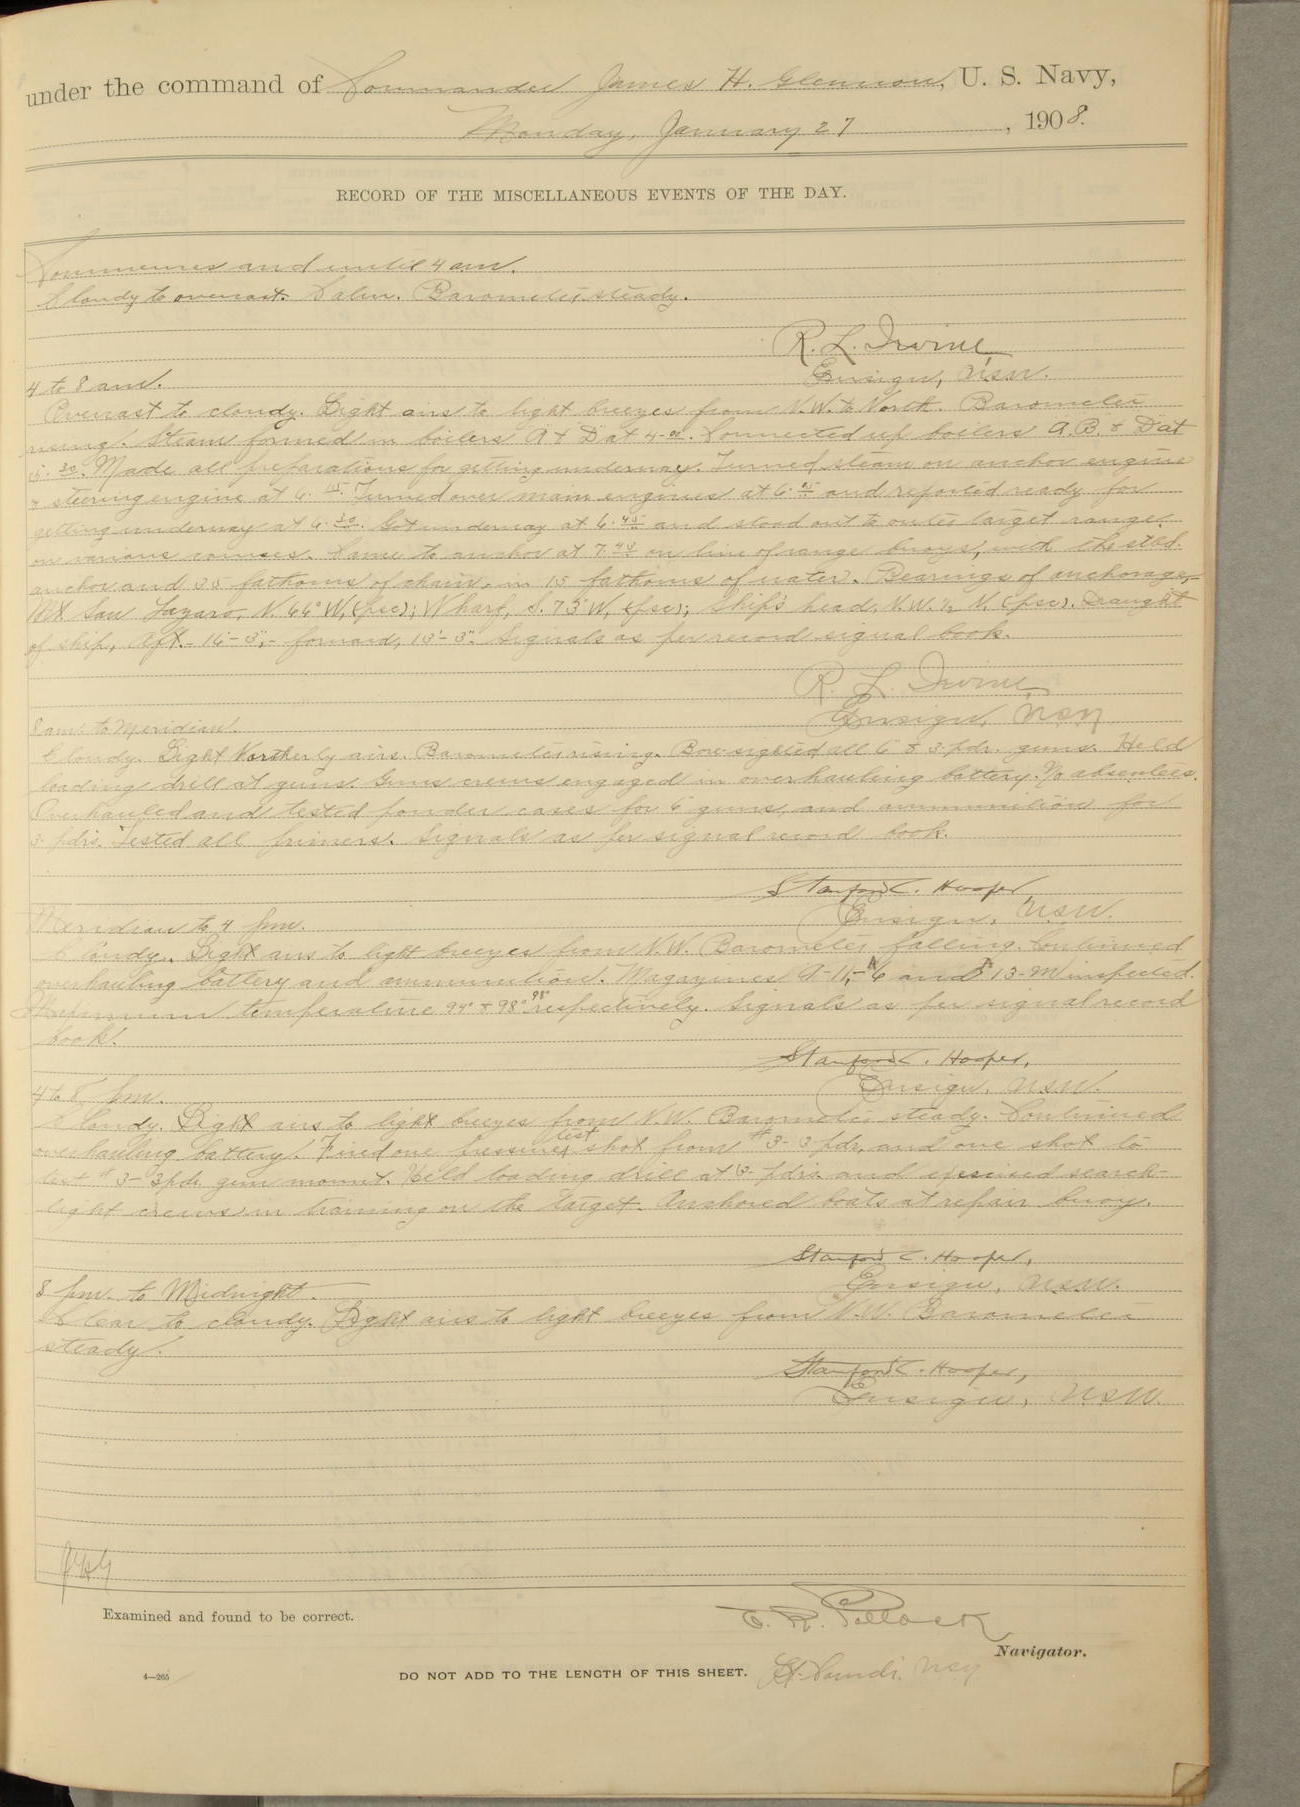 under the command of Commander James H. Glennon, U. S. Navy,
Monday, January 27, 1908.
RECORD OF THE MISCELLANEOUS EVENTS OF THE DAY.
Commences and until 4 am.
Cloudy to overcast. Calm. Barometer steady.
R. L. Irvine
Ensign, USN.
4 to 8 am.
Overcast to cloudy. Light airs to light breezes from N.W. to North. Barometer
rising. Steam formed in boilers A & D at 4-00. Connected up boilers A. B. & D at
5:30. Made all preparations for getting underway. Turned steam on anchor engine
& steering engine at 6.15. Turned over main engines at 6.25 and reported ready for
getting underway at 6.30. Got underway at 6.45 and stood out to outer target range
on various courses. Came to anchor at 7.40 on line of range buoys, with the stbd.
anchor and 35 fathoms of chain, in 15 fathoms of water. Bearings of anchorage,-
Mt San Lazaro, N. 66° W, (psc); Wharf, S. 73° W, (psc); Ship's head, N.W. ½ N, (psc). Draught
of ship, Aft. - 16'-3",- forward, 15'-3". Signals as per record signal book.
R. L. Irvine
Ensign, USN
8 am. to Meridian.
Cloudy. Light Northerly airs. Barometer rising. Bore-sighted all 6" & 3 pdr. guns. Held
loading drill at guns. Guns crews engaged in overhauling battery. No absentees.
Overhauled and tested powder cases for 6" guns, and ammunition for
3 pdrs. Tested all primers. Signals as per signal record book.
Stanford C. Hooper,
Ensign, USN.
Meridian to 4 pm.
Cloudy. Light airs to light breezes from N.W. Barometer falling. Continued
overhauling battery and ammunition. Magazines A-11, A-6 and 13-M inspected.
Maximum temperature 94° & 98° 98° respectively. Signals as per signal record
book.
Stanford C. Hooper,
Ensign, USN.
4 to 8, pm.
Cloudy. Light airs to light breezes from N.W. Barometer steady. Continued
overhauling battery. Fired one pressure test shot from #3-3 pdr, and one shot to
test #3-3 pdr gun mount. Held loading drill at 3- pdrs. and exercised search-
light crews in training on the target. Anchored boats at repair buoy.
Stanford C. Hooper,
Ensign, USN.
8 pm. to Midnight.
Clear to cloudy. Light airs to light breezes from N.W. Barometer
steady.
Stanford C. Hooper,
Ensign, USN.
JHG
Examined and found to be correct.
E. R. Pollock
Navigator.
4—265
DO NOT ADD TO THE LENGTH OF THIS SHEET.
Lt. Comdr. USN